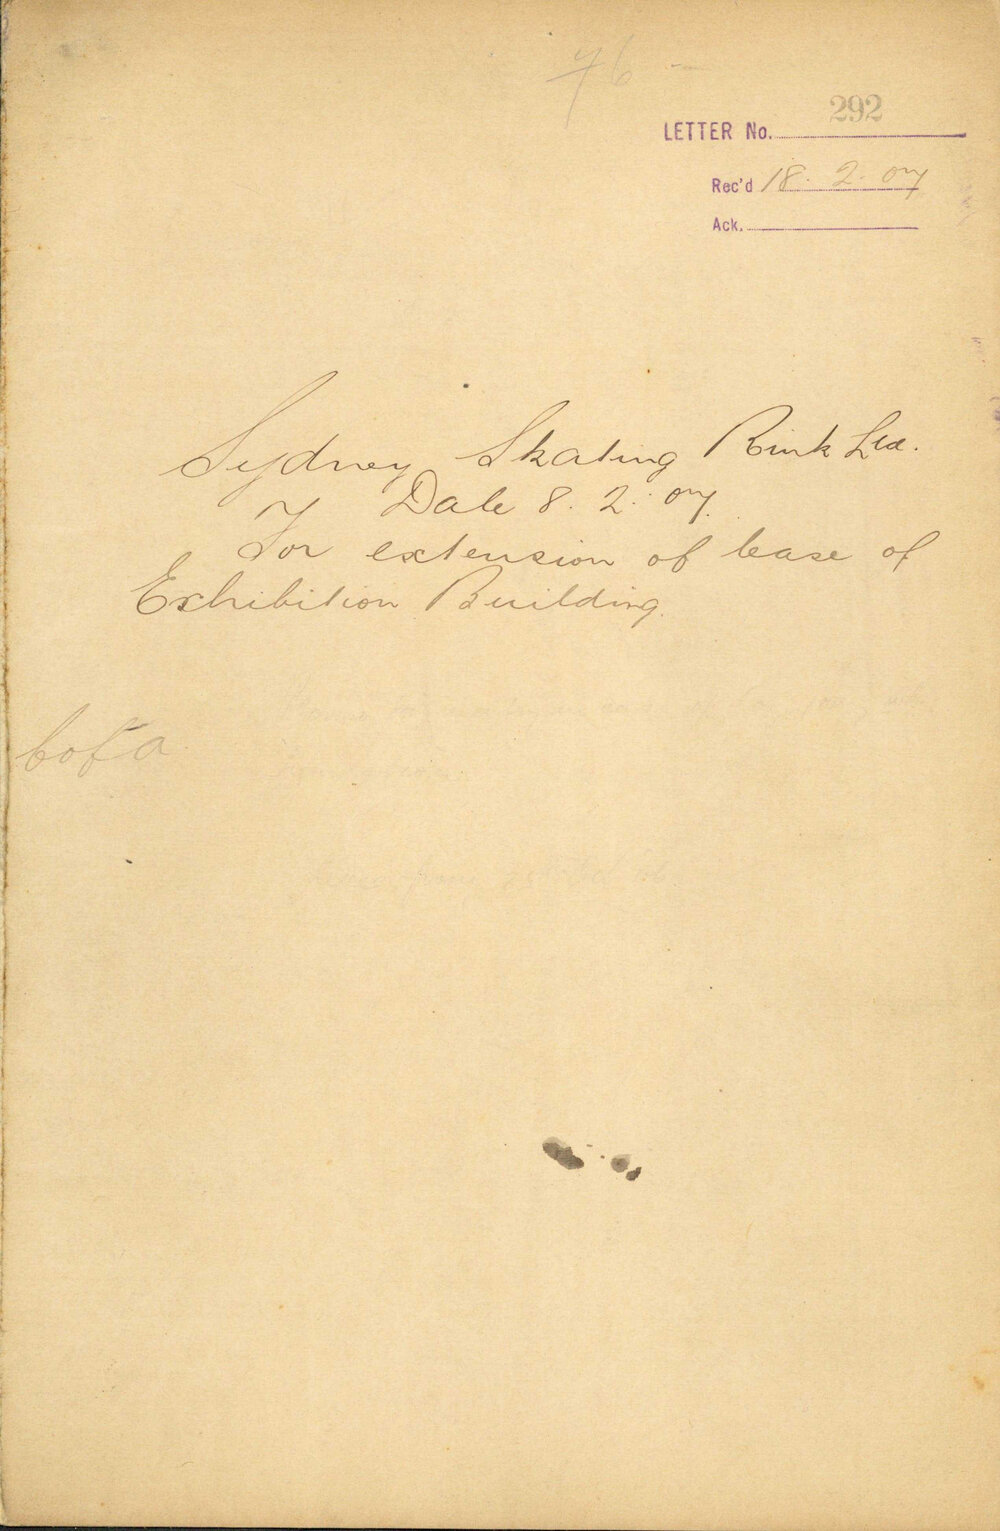 76
LETTER No. 292
Rec'd 18. 2. 07
Ack.
Sydney Skating Rink Ltd.
Date 8. 2. 07.
For extension of lease of
Exhibition Building.
C of A